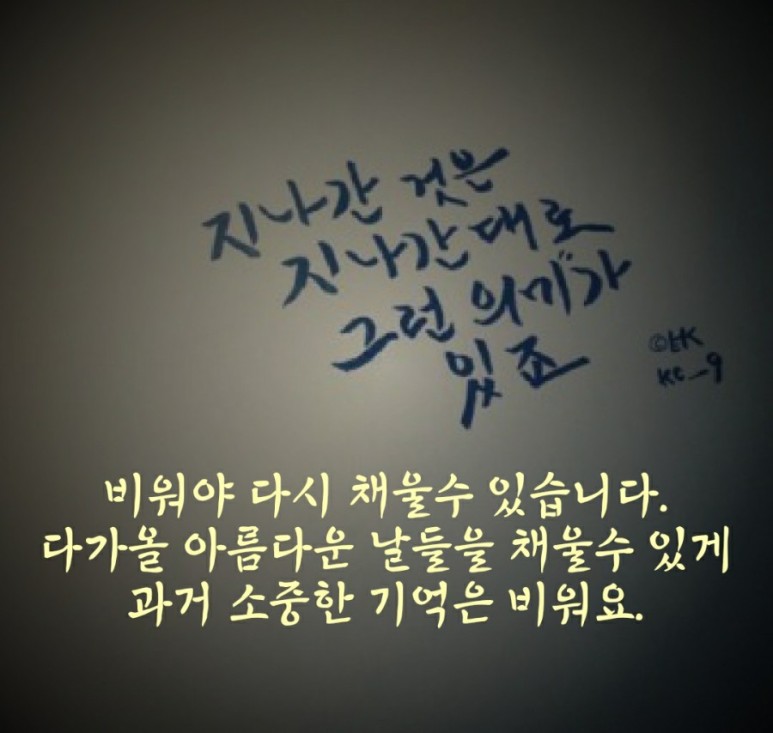 지나간 것은
지나간 대로
그런 의미가
있죠
©EK
KC_9
비워야 다시 채울수 있습니다.
다가올 아름다운 날들을 채울수 있게
과거 소중한 기억은 비워요.